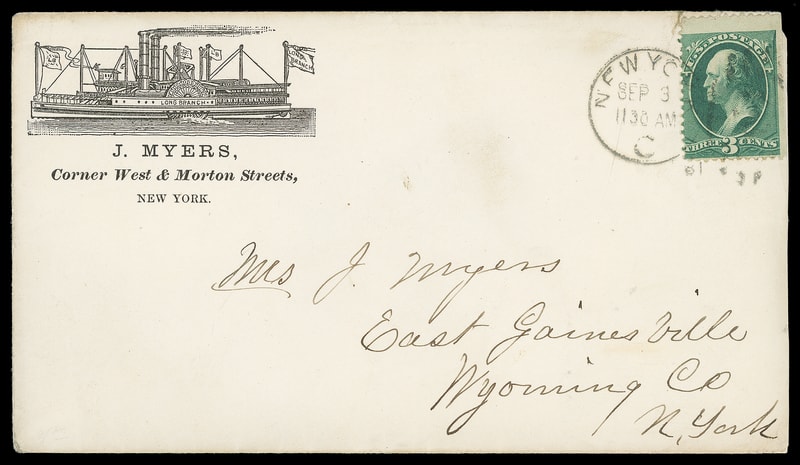 LONG BRANCH
LONG BRANCH
J. MYERS,
Corner West & Morton Streets,
NEW YORK.
NEW YO
SEP 3
1130 AM
C
U.S. POSTAGE
THREE 3 CENTS
Mrs J. Myers
East Gainesville
Wyoming Co
N, York